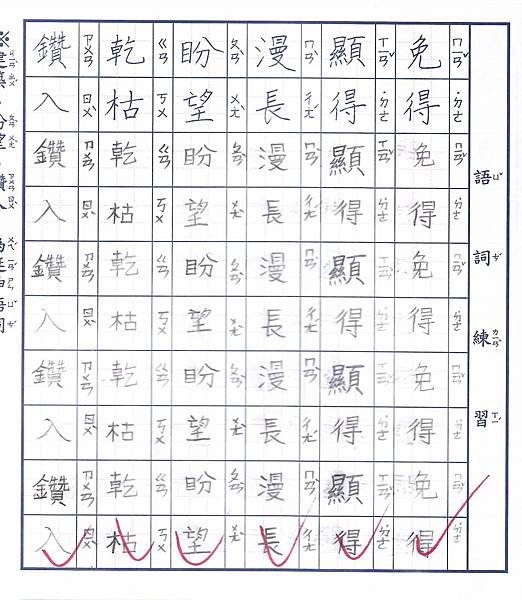 語ㄩˇ詞ㄘˊ練ㄌㄧㄢˋ習ㄒㄧˊ
免ㄇㄧㄢˇ得˙ㄉㄜ免ㄇㄧㄢˇ得˙ㄉㄜ免ㄇㄧㄢˇ得˙ㄉㄜ免ㄇㄧㄢˇ得˙ㄉㄜ免ㄇㄧㄢˇ得˙ㄉㄜ
顯ㄒㄧㄢˇ得˙ㄉㄜ顯ㄒㄧㄢˇ得˙ㄉㄜ顯ㄒㄧㄢˇ得˙ㄉㄜ顯ㄒㄧㄢˇ得˙ㄉㄜ顯ㄒㄧㄢˇ得˙ㄉㄜ
漫ㄇㄢˋ長ㄔㄤˊ漫ㄇㄢˋ長ㄔㄤˊ漫ㄇㄢˋ長ㄔㄤˊ漫ㄇㄢˋ長ㄔㄤˊ漫ㄇㄢˋ長ㄔㄤˊ
盼ㄆㄢˋ望ㄨㄤˋ盼ㄆㄢˋ望ㄨㄤˋ盼ㄆㄢˋ望ㄨㄤˋ盼ㄆㄢˋ望ㄨㄤˋ盼ㄆㄢˋ望ㄨㄤˋ
乾ㄍㄢ枯ㄎㄨ乾ㄍㄢ枯ㄎㄨ乾ㄍㄢ枯ㄎㄨ乾ㄍㄢ枯ㄎㄨ乾ㄍㄢ枯ㄎㄨ
鑽ㄗㄨㄢ入ㄖㄨˋ鑽ㄗㄨㄢ入ㄖㄨˋ鑽ㄗㄨㄢ入ㄖㄨˋ鑽ㄗㄨㄢ入ㄖㄨˋ鑽ㄗㄨㄢ入ㄖㄨˋ
※建築、盼望、鑽入為延伸語詞